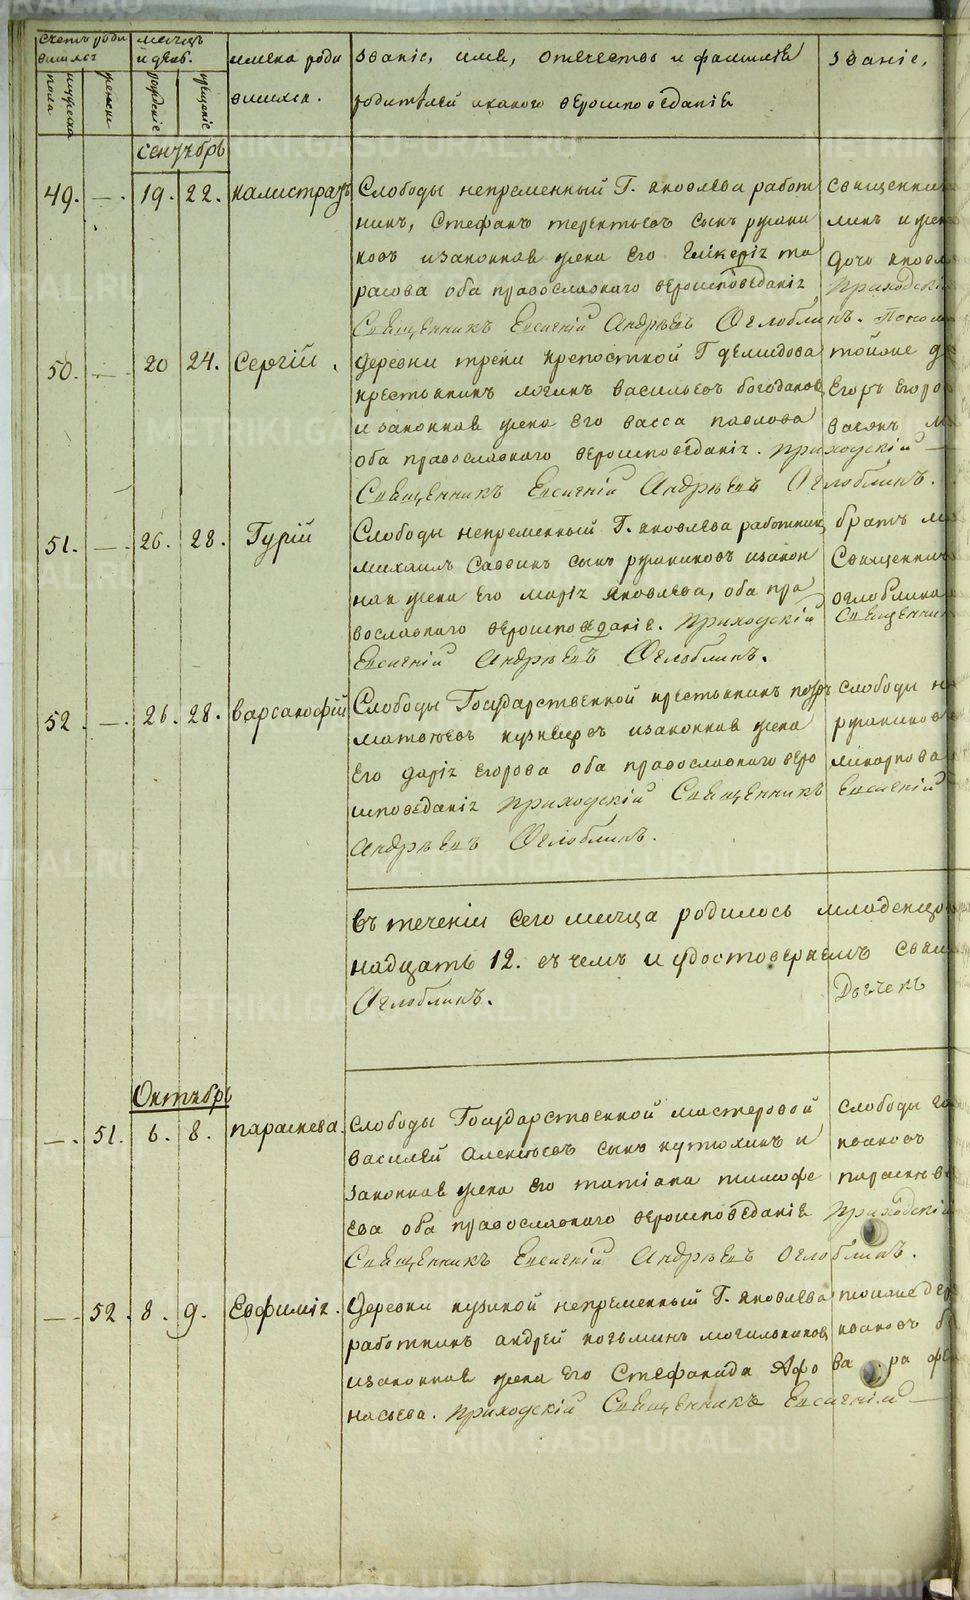 счетъ роди
вшихся
мужеска
пола
женска
месяцъ
и день.
рожденіе
крещеніе
имена роди
вшихся.
званіе, имя, отечество и фамилія
родителей и какого вероисповеданія
званіе,
сентябрь
49. — 19. 22. калистратъ
Слободы непременный Г. яковлева работ
никъ, Стефанъ терентьевъ сынъ ружни
ковъ и законная жена его гликерія та
расова оба православнаго вероисповеданія
Священникъ Евсигній Андрѣевъ Оглоблинъ.
священник
дочь яковл
Приходскій
50. — 20 24. Сергій.
деревни треки крепостной Г демидова
крестьянинъ логинъ васильевъ богдановъ
и законная жена его васса павлова
оба православнаго вероисповеданія. приходскій
Священникъ Евсигній Андрѣевъ Оглоблинъ.
тойже д
Егоръ Егоро
51. — 26. 28. Гурій
Слободы непременный Г. яковлева работник
михаилъ саввинъ сынъ ружниковъ и закон
ная жена его марія яковлева, оба пра
вославнаго вероисповеданія. приходскій
Евсигній Андрѣевъ Оглоблинъ.
братъ
Священник
оглоблина
Священник
52. — 26. 28. варсанофій
Слободы Государственной крестьянинъ
матвѣевъ кузнецовъ и законная жена
Его дарія егорова оба православнаго веро
исповеданія приходскій Священникъ Евсигній
Андрѣевъ Оглоблинъ.
слободы н
ружников
въ теченіи сего месяца родилось младенцо
надцать 12. въ чемъ и удостоверяемъ свящ
Оглоблинъ.
Дьячекъ
Октябрь
— 51. 6. 8. параскева.
слободы Государственной мастеровой
василей алексѣевъ сынъ кутюхинъ и
законная жена его татіана тимофе
ева оба православнаго вероисповеданія приходскій
Священникъ Евсигній Андрѣевъ оглоблинъ.
слободы го
ивановъ
параскев
— 52. 8. 9. Евфимія.
деревни кузиной непременный Г. яковлева
работникъ андрей козьминъ могильников
и законная жена его Стефанида Афо
насьева. приходскій Священникъ Евсигній
тойже дер
ивановъ
METRIKI.GASO-URAL.RU